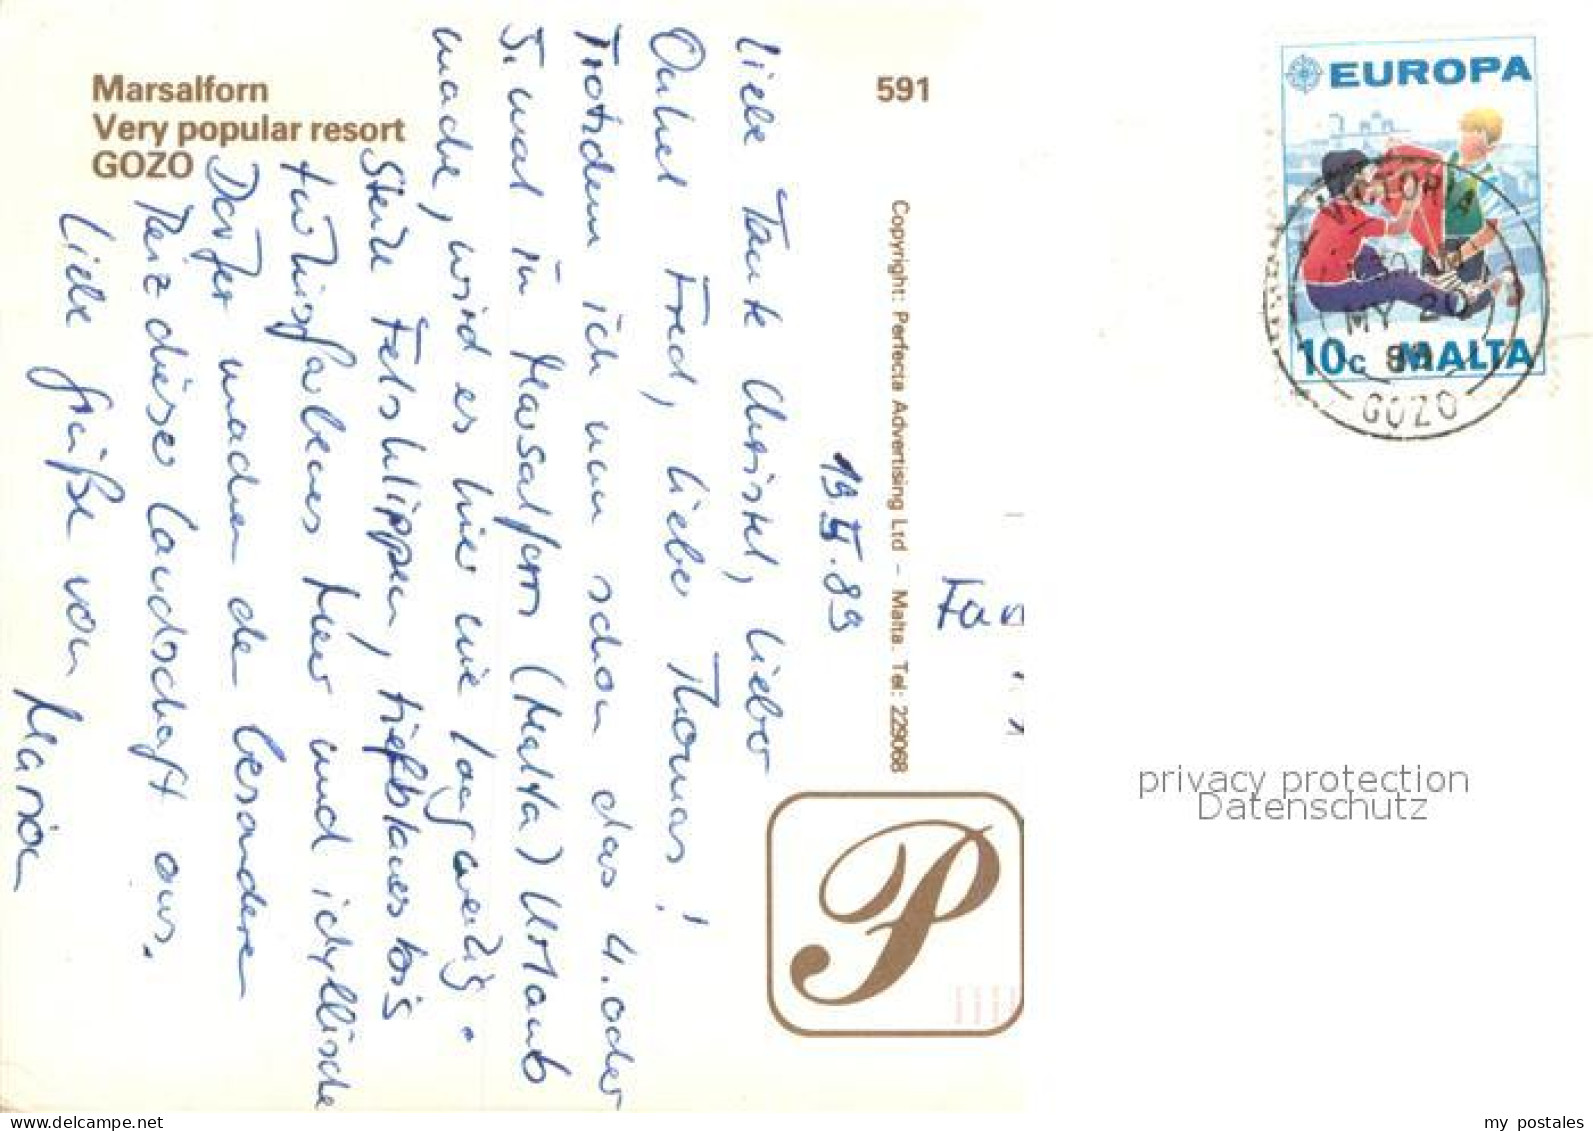 Marsalforn
Very popular resort
GOZO
591
Copyright: Perfecta Advertising Ltd – Malta. Tel: 229068
19.V.89
liebe Tante Christel, lieber
Onkel Fred, lieber Thomas!
Trotzdem ich nun schon das 4. oder
5. mal in Marsalforn (Malta) Urlaub
mache, wird es hier nie langweilig.
Steile Felsklippen, tiefblaues bis
türkisfarbenes Meer und idyllische
Dörfer machen den besonderen
Reiz dieser Landschaft aus.
liebe Grüße von
Marion
Fam
P
EUROPA
10c MALTA
VICTORIA
MY 20
89
GOZO
privacy protection
Datenschutz
www.delcampe.net
my_postales